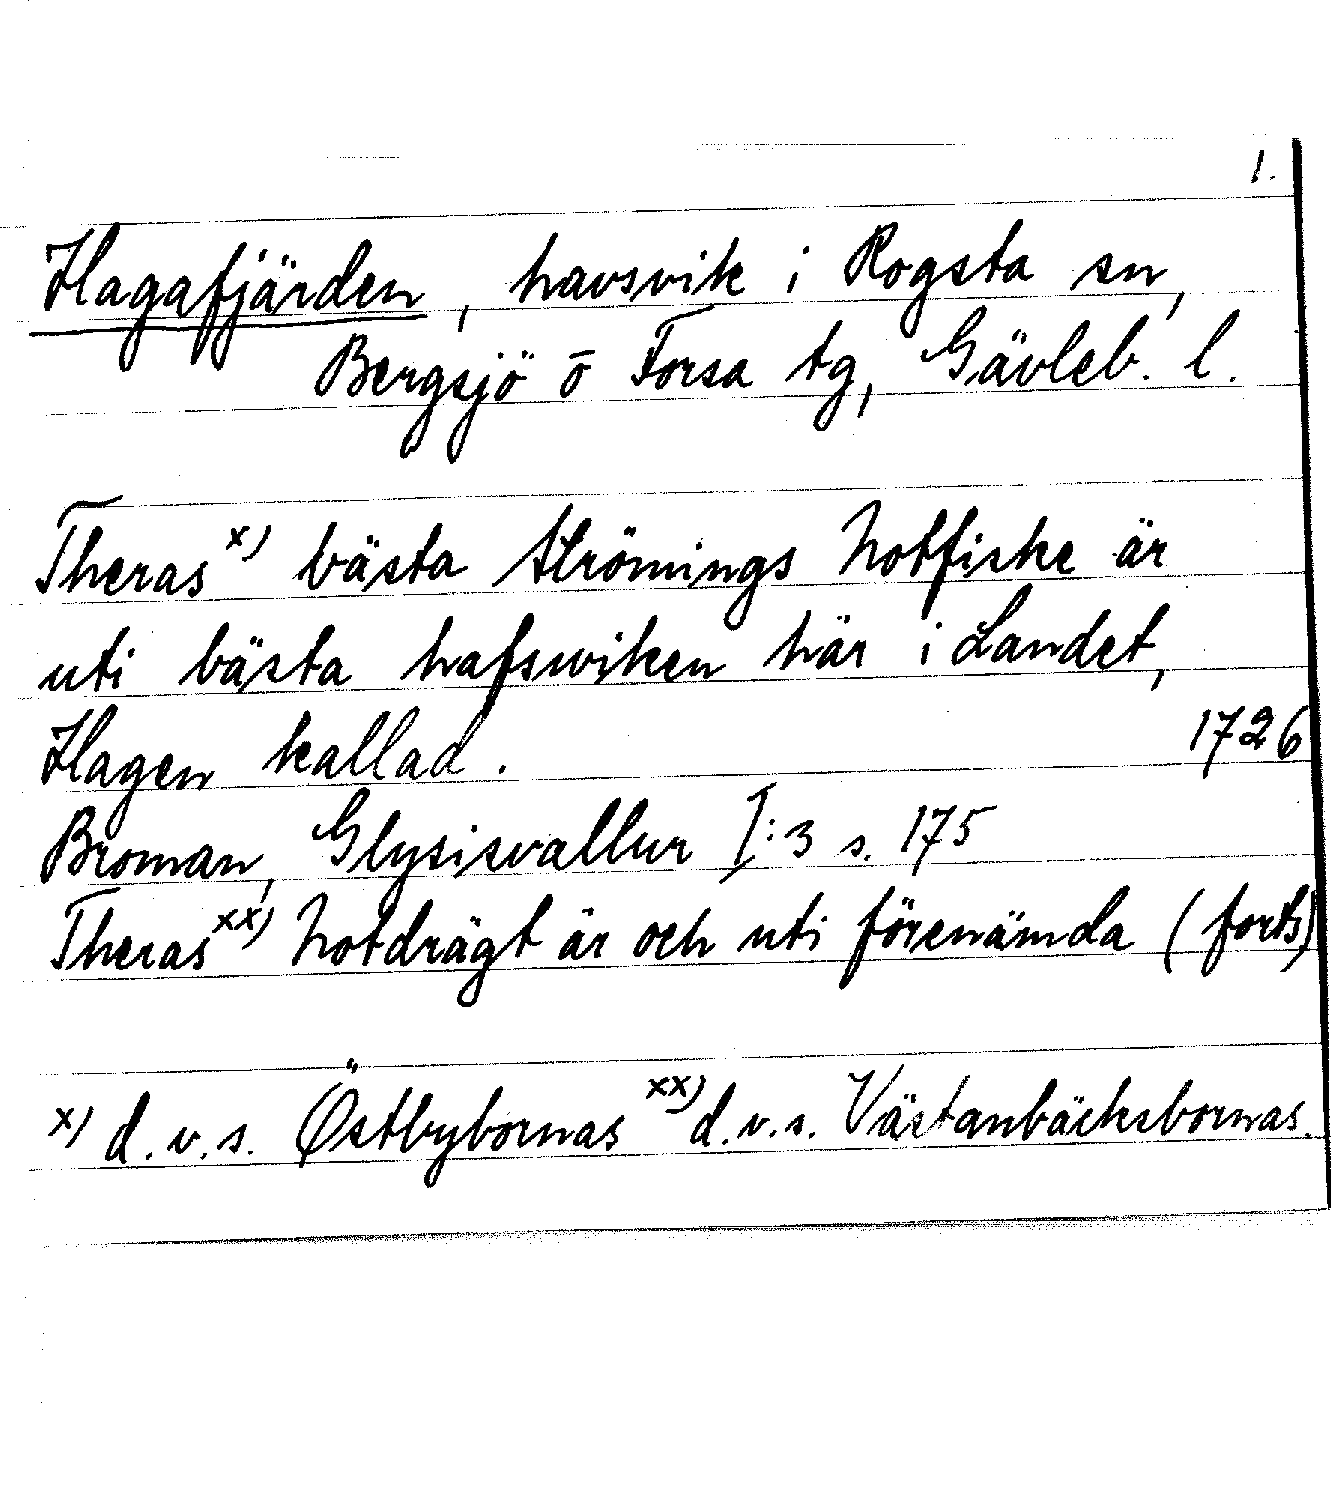 1.
Hagafjärden, havsvik i Rogsta sn,
Bergsjö o Forsa tg, Gävleb. l.
Theras x) bästa Strömings Notfiske är
uti bästa hafswiken här i Landet,
Hagen kallad. 1726
Broman, Glysisvallur I:3 s. 175
Theras xx) Notdrägt är och uti förenämda (forts)
x) d.v.s. Östbybornas xx) d.v.s. Västanbäcksbornas.